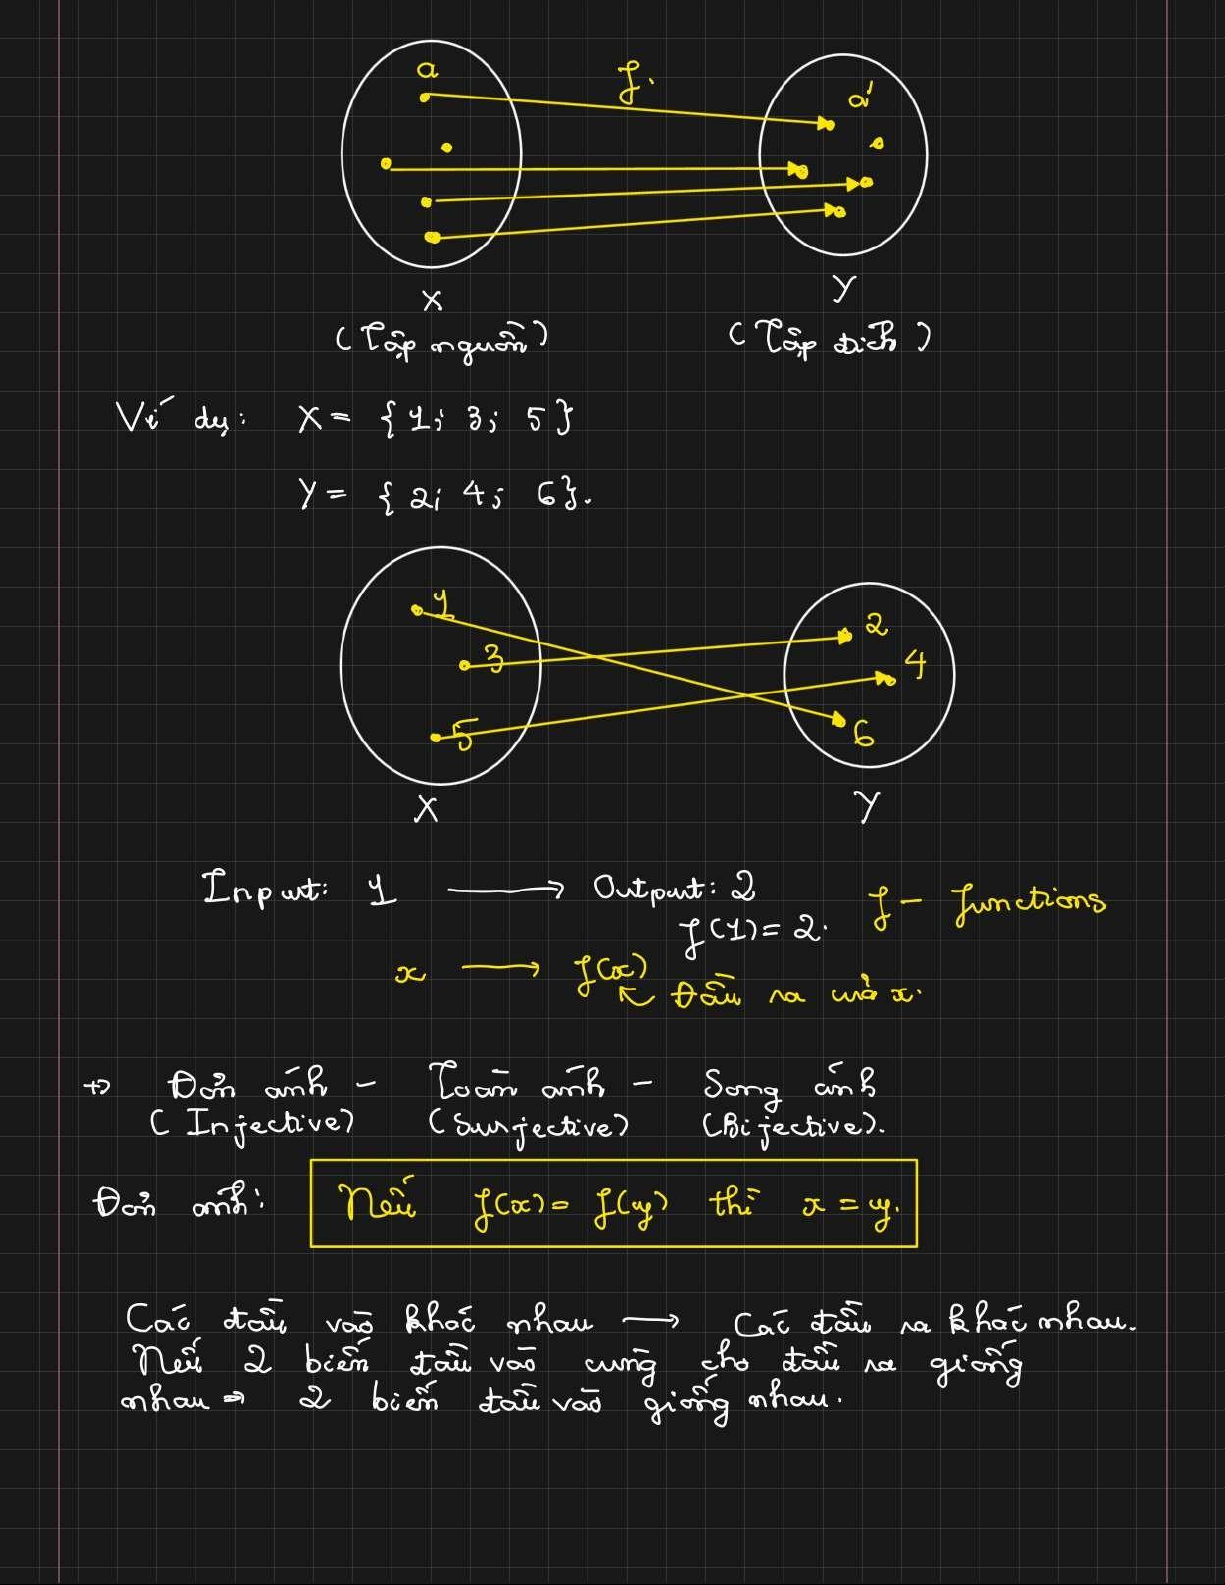 a f. a'
X Y
(Tập nguồn) (Tập đích)
Ví dụ: X = {1; 3; 5}
Y = {2; 4; 6}.
1 2
3 4
5 6
X Y
Input: 1 ⟶ Output: 2 f - functions
f(1) = 2.
x ⟶ f(x)
↖ Đầu ra của x.
+> Đơn ánh - Toàn ánh - Song ánh
(Injective) (Surjective) (Bijective).
Đơn ánh: Nếu f(x) = f(y) thì x = y.
Các đầu vào khác nhau ⟶ Các đầu ra khác nhau.
Nếu 2 biến đầu vào cùng cho đầu ra giống
nhau ⇒ 2 biến đầu vào giống nhau.